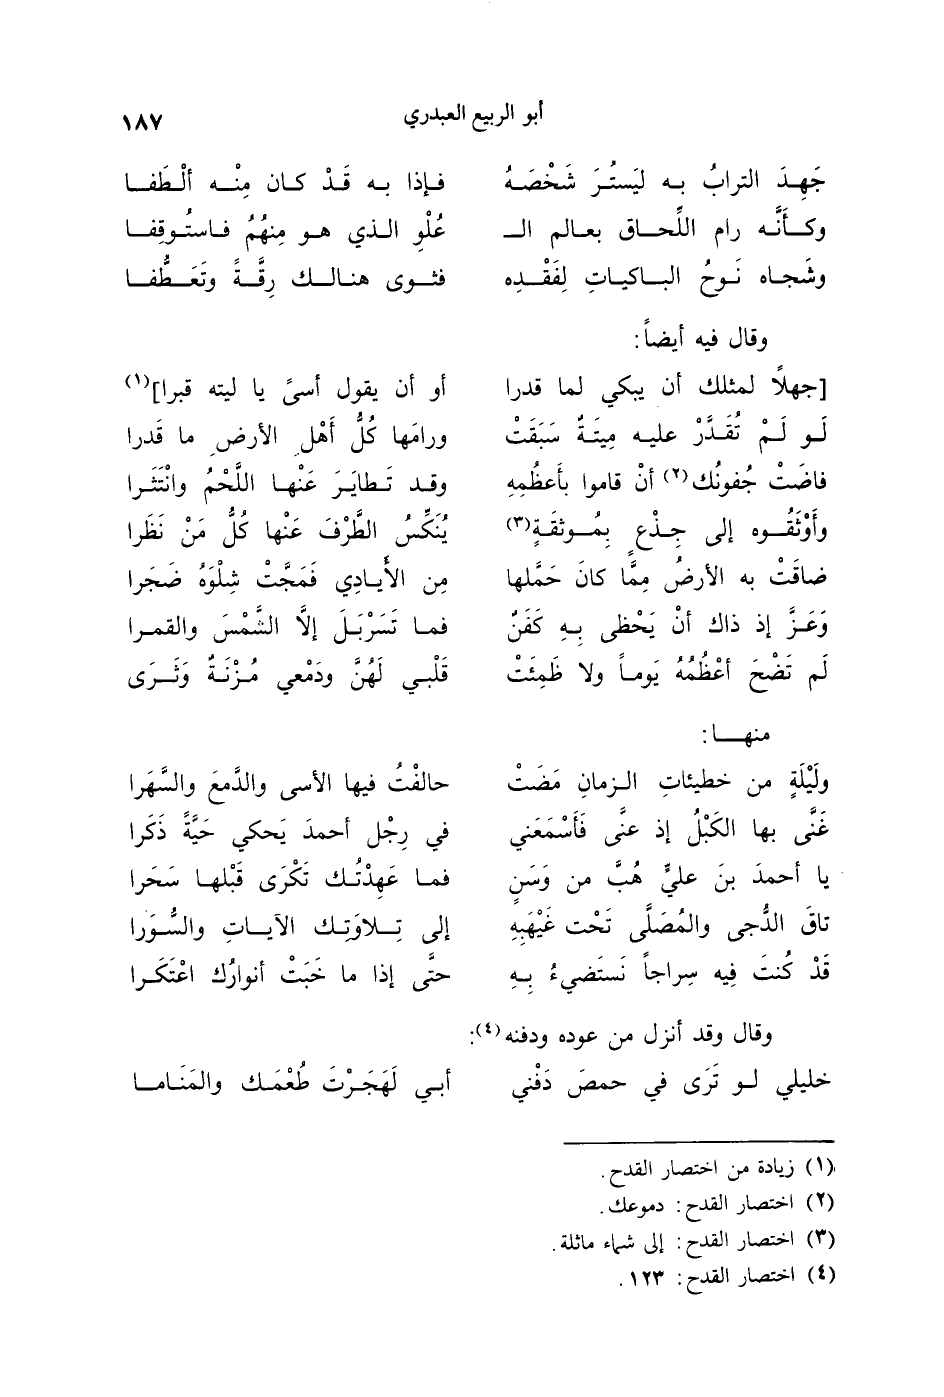 أبو الربيع العبدري ١٨٧
جَهِدَ الترابُ به ليَستُرَ شَخْصَهُ فإذا به قَدْ كان مِنْه ألْطَفا
وكأنَّه رام اللِّحاق بعالم الـ عُلْوِ الذي هو مِنهُمُ فاستُوقِفا
وشَجاه نَوحُ الباكياتِ لِفَقْدِه فثوى هنالك رِقَّةً وتَعَطُّفا
وقال فيه أيضاً:
[جهلاً لمثلك أن يبكي لما قدرا أو أن يقول أسىً يا ليته قبرا](١)
لو لَمْ تُقَدَّرْ عليه مِيتَةٌ سَبَقَتْ ورامَها كُلُّ أَهْلِ الأرضِ ما قَدرا
فاضَتْ جُفونُك(٢) أنْ قاموا بأَعظُمِهِ وقد تَطايَرَ عَنْها اللَّحْمُ وانْتَثَرا
وأَوْثَقُوه إلى جِذْعٍ بِمُوثقَةٍ(٣) يُنَكِّسُ الطَّرْفَ عَنْها كُلُّ مَنْ نَظَرا
ضاقَتْ به الأرضُ مِمَّا كانَ حَمَّلها مِن الأَيادِي فَمَجَّتْ شِلْوَهُ ضَجَرا
وَعَزَّ إذ ذاك أنْ يَحْظى بِهِ كَفَنٌ فما تَسَرْبَلَ إلاَّ الشَّمْسَ والقمرا
لم تَضْحَ أعْظُمُهُ يَوماً ولا ظَمِئَتْ قَلْبي لَهُنَّ ودَمْعي مُزْنَةٌ وَثَرى
منها:
ولَيْلَةٍ من خطيئاتِ الزمانِ مَضَتْ حالفْتُ فيها الأسى والدَّمعَ والسَّهَرا
غَنَّى بها الكَبْلُ إذ عنَّى فَأَسْمَعَني في رِجْلِ أحمدَ يَحكي حَيَّةً ذَكَرا
يا أحمدَ بنَ عليٍّ هُبَّ من وَسَنٍ فما عَهِدْتُك تَكْرَى قَبْلها سَحَرا
تاقَ الدُّجى والمُصَلَّى تَحْت غَيْهَبِهِ إلى تِلاوَتِك الآياتِ والسُّوَرا
قَدْ كُنتَ فِيه سِراجاً نَستَضيءُ بِهِ حتَّى إذا ما خَبَتْ أنوارُك اعْتَكَرا
وقال وقد أنزل من عوده ودفنه(٤):
خليلي لو تَرَى في حمصَ دَفْني أبي لَهَجَرْتَ طُعْمَك والمَناما
(١) زيادة من اختصار القدح.
(٢) اختصار القدح: دموعك.
(٣) اختصار القدح: إلى شماء ماثلة.
(٤) اختصار القدح: ١٢٣.